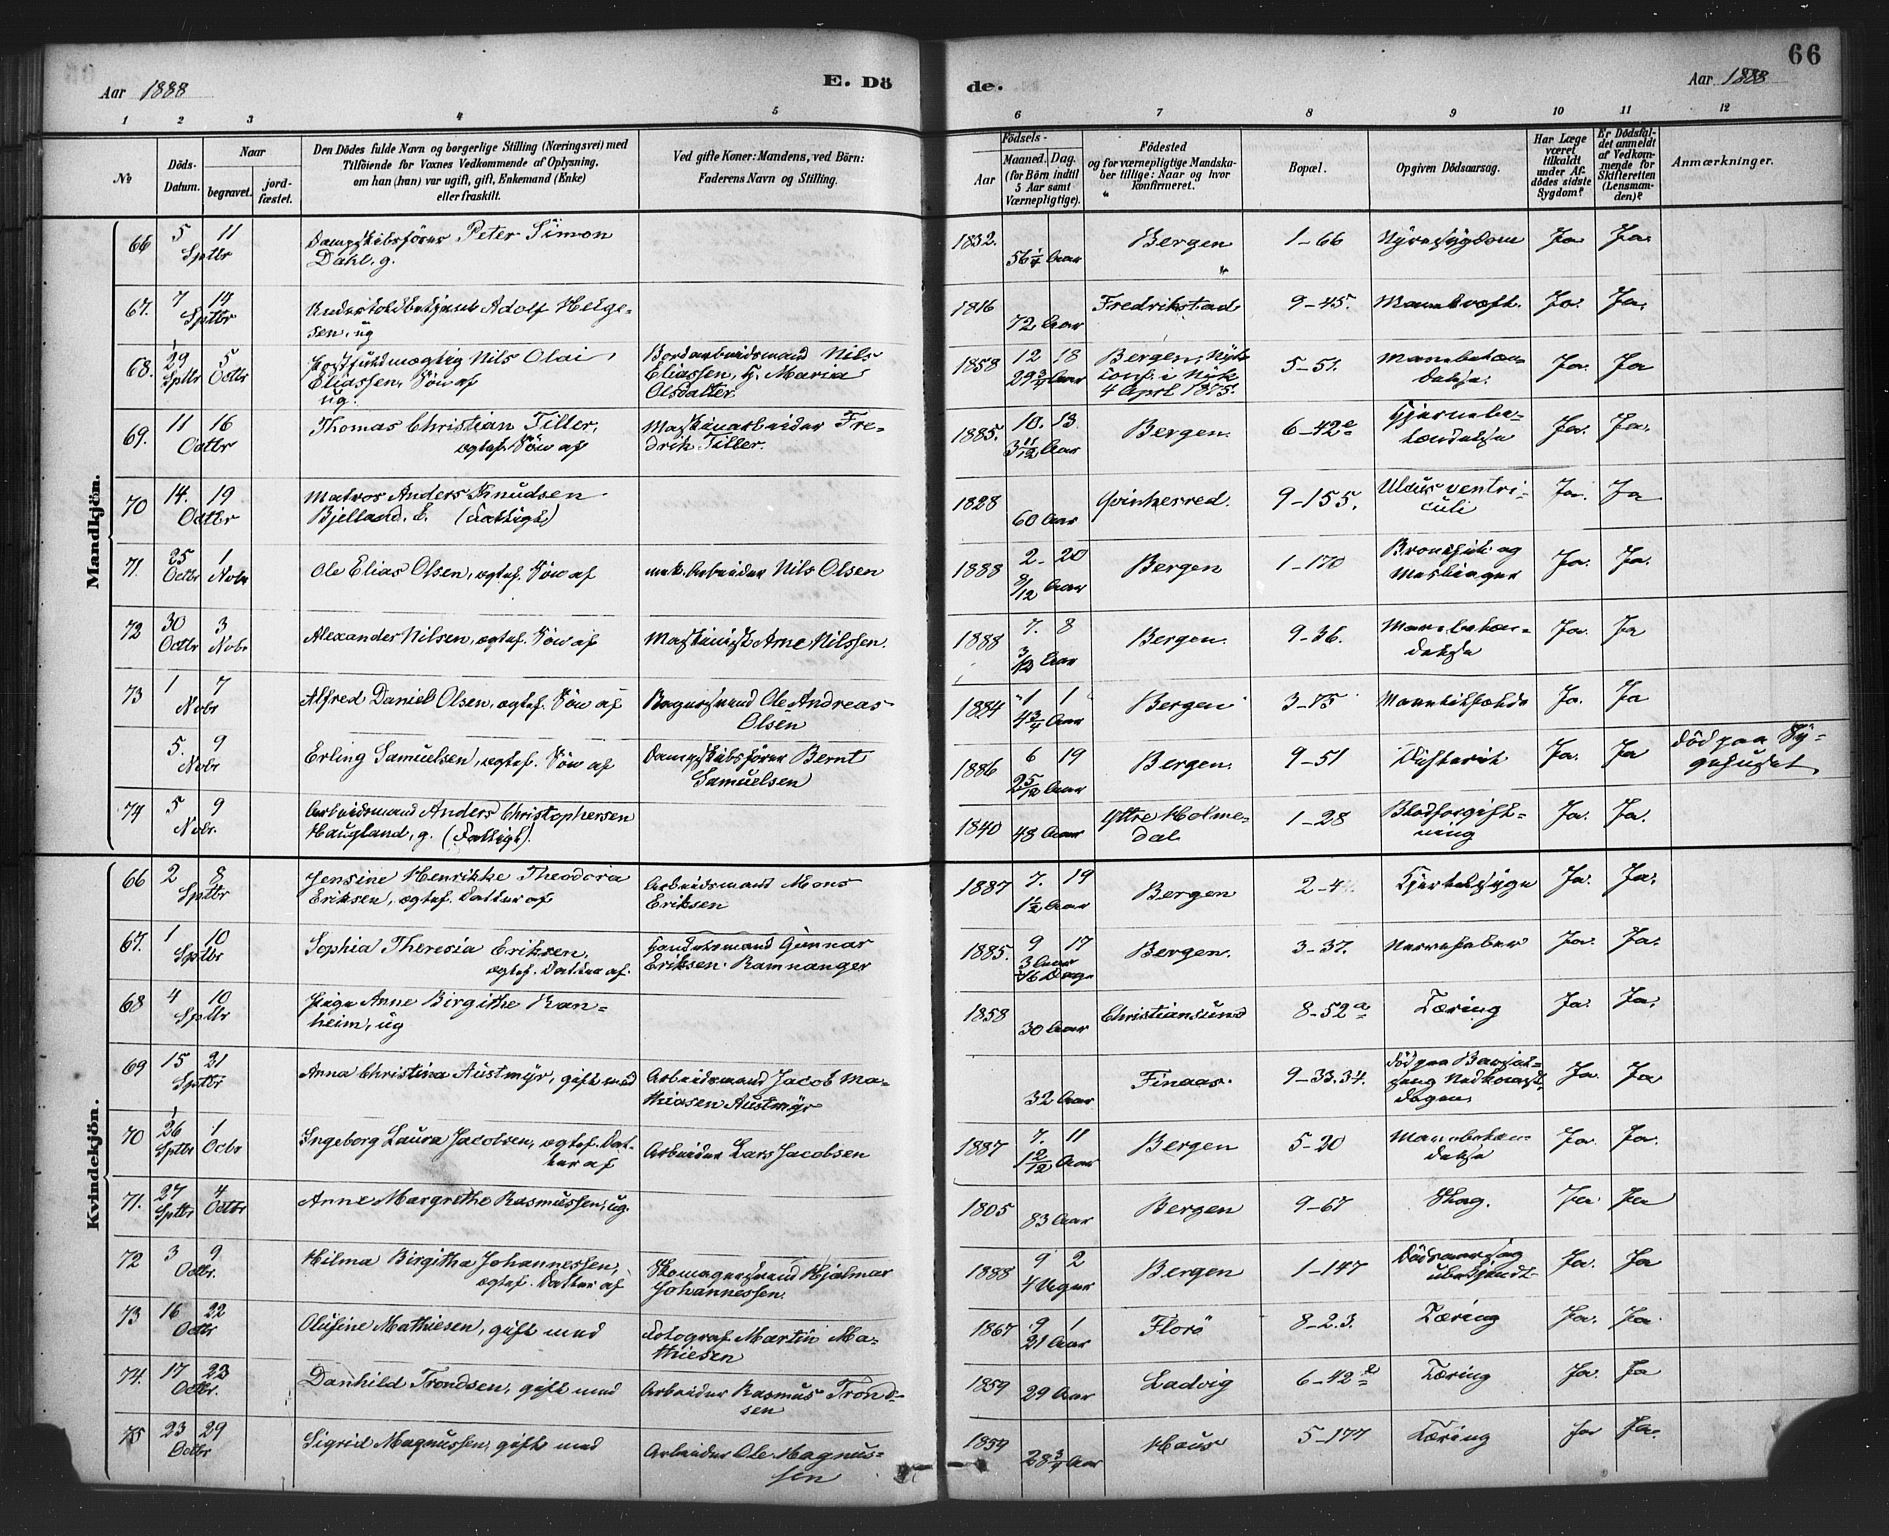 66
Aar 1888
E. Dö
de.
Aar 1888
1 2 3 4 5 6 7 8 9 10 11 12
No
Döds-Datum.
Naar
begravet.
jord-fæstet.
Den Dödes fulde Navn og borgerlige Stilling (Næringsvei) med
Tilföiende for Voxnes Vedkommende af Oplysning.
om han (hun) var ugift, gift, Enkemand (Enke)
eller fraskilt.
Ved gifte Koner: Mandens, ved Börn:
Faderens Navn og Stilling.
Födsels-
Aar
Maaned. Dag.
(for Börn indtil
5 Aar samt
Værnepligtige).
Födested
og for værnepligtige Mandska-
ber tillige: Naar og hvor
konfirmeret.
Bopæl.
Opgiven Dödsaarsag.
Har Læge
været
tilkaldt
under Af-
dödes sidste
Sygdom?
Er Dödsfal-
det anmeldt
af Vedkom-
mende for
Skifteretten
(Lensman-
den)?
Anmærkninger.
Mandkjön.
66 5 11 Sptbr Dampskibsförer Peter Simon Dahl, g. 1832. 56 1/4 Aar Bergen 1-66 Nyresygdom Ja Ja.
67. 7 14 Sptbr Undertoldbetjent Adolf Helge-sen, ug 1816 72 Aar Fredrikstad 9-45. Mavekræft. Ja. Ja.
68. 29 Sptbr 5 Octbr Postfuldmægtig Nils Olai Eliassen, Sön af ug. Bordarbeidsmand Nils Eliassen, h. Maria Olsdatter 1858 12 18 29 3/4 Aar Bergen, Nyk. conf. i Nyk 4 April 1875. 5-51. Ja. Ja
69. 11 16 Octbr Thomas Christian Tiller, ægtef. Sön af Maskinarbeider Fre-drik Tiller. 1885. 10. 13. 3 11/12 Aar Bergen. 6-42e Hjernebe-tændelse Ja. Ja.
70 14. 19 Octbr Matros Anders Knudsen Bjelland, E. (Fattigt) 1828 60 Aar Qvinherred. 9-155. Ulcus ventri-culi Ja. Ja
71. 25 Octbr 1 Novbr Ole Elias Olsen, ægtef. Sön af mek. Arbeider Nils Olsen 1888 2. 20 8/12 Aar Bergen 1-170 Bronchit og Meslinger Ja. Ja.
72 30 Octbr 3 Nobr Alexander Nilsen, ægtef. Sön af Maskinist Arne Nilssen. 1888 7. 8 3/12 Aar Bergen. 9-36. Ja. Ja
73 1 7 Nobr Alfred Daniel Olsen, ægtef. Sön af Bagersvend Ole Andreas Olsen 1884 1 1 4 3/4 Aar Bergen 3-75 Ja. Ja
5. 9 Nobr Erling Samuelsen, ægtef. Sön af Dampskibsförer Bernt Samuelsen 1886 6 19 2 5/12 Aar Bergen. 9-51 Difterit Ja. Ja död paa Sy-gehuset
74 5 9 Nobr. Arbeidsmand Anders Christophersen Haugland, g. (Fattigt). 1840 48 Aar Yttre Holme-dal 1-28 Blodforgift-ning Ja. Ja.
Kvindekjön.
66 2 8 Sptbr Jensine Henrikke Theodora Eriksen, ægtef. Datter af Arbeidsmand Mons Eriksen 1887 7. 19 1 1/2 Aar Bergen 2-4 Kjertelsyge Ja. Ja.
67. 1 10 Sptbr Sophia Theresia Eriksen, ægtef. Datter af. Landhandsmand Gunnar Eriksen Ramnanger 1885. 9 17 3 Aar 16 Dage Bergen. 3-37. Nervefeber Ja. Ja.
68 4 10 Sptbr Pige Anne Birgithe Ran-heim, ug 1858 30 Aar Christiansund 8-52a Tæring Ja. Ja.
69 15 21 Sptbr Anna Christina Austmyr, gift med Arbeidsmand Jacob Ma-thiasen Austmyr 32 Aar Finaas. 9-33.34. död paa Barsel-seng Ja. Ja
70 26 Sptbr 1 Octbr Ingeborg Laura Jacobsen, ægtef. Dat-ter af Arbeider Lars Jacobsen 1887 7. 11 1 2/12 Aar Bergen 5-20 Ja. Ja.
71. 27 Sptbr 4 Octbr Anne Margrethe Rasmussen, ug. 1805 83 Aar Bergen 9-67 Slag. Ja. Ja
72 3 9 Octbr. Hilma Birgitha Johannessen, ægtef. Datter af Skomagersvend Hjalmar Johannessen. 1888 9 2 4 Uger Bergen 1-147 Dödsaarsag ubekjendt Ja. Ja
73 16 22 Octbr Olufine Mathiesen, gift med Fotograf Martin Ma-thiesen 1867 9 1 21 Aar Florö 8-2.3. Tæring Ja. Ja.
74. 17 23 Octbr. Danhild Trondsen, gift med Arbeider Rasmus Trond-sen 1859 29 Aar Ladvig 6-42e Tæring Ja. Ja
75 23 29 Octbr Sigrid Magnussen, gift med Arbeider Ole Magnus-sen 1859 28 3/4 Aar Haus 5-177 Tæring Ja Ja.